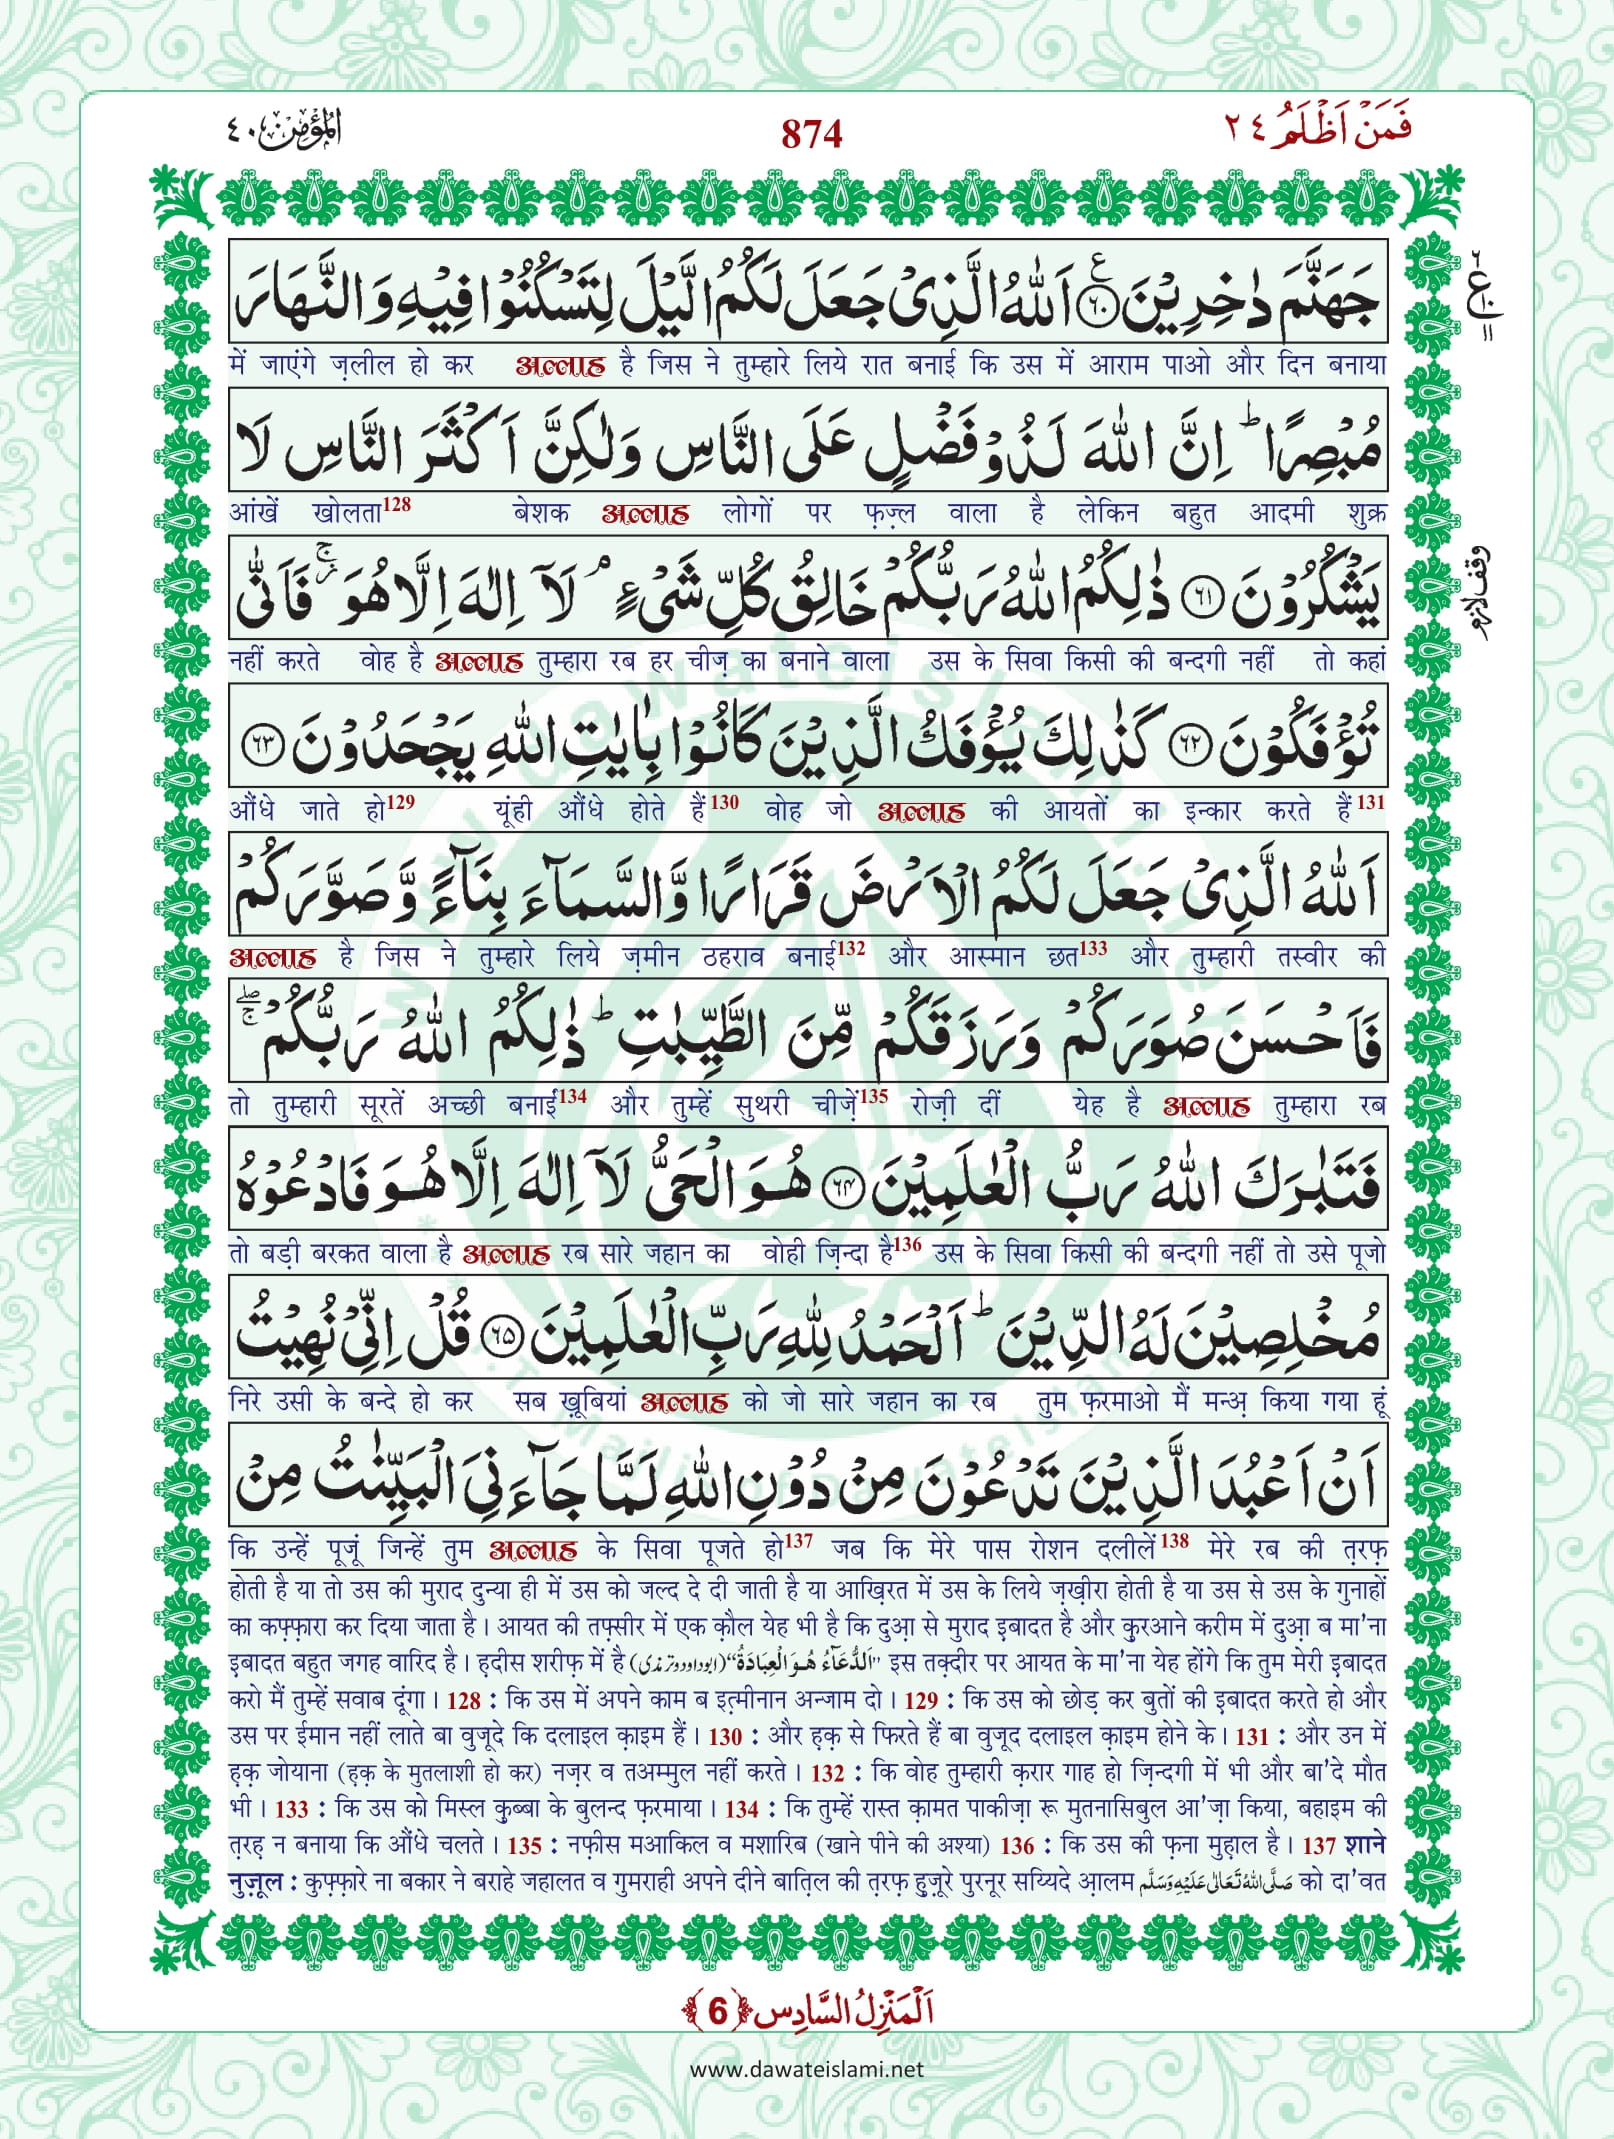 فَمَنْ اَظْلَمُ ٢٤ 874 اَلْمُؤْمِن ٤٠
جَهَنَّمَ دٰخِرِيْنَ ﴿٦٠﴾ اَللّٰهُ الَّذِيْ جَعَلَ لَكُمُ الَّيْلَ لِتَسْكُنُوْا فِيْهِ وَ النَّهَارَ
में जाएंगे ज़लील हो कर अल्लाह है जिस ने तुम्हारे लिये रात बनाई कि उस में आराम पाओ और दिन बनाया
مُبْصِرًا ؕ اِنَّ اللّٰهَ لَذُوْ فَضْلٍ عَلَى النَّاسِ وَلٰكِنَّ اَكْثَرَ النَّاسِ لَا
आंखें खोलता128 बेशक अल्लाह लोगों पर फ़ज़्ल वाला है लेकिन बहुत आदमी शुक्र
وقف لازم
يَشْكُرُوْنَ ﴿٦١﴾ ذٰلِكُمُ اللّٰهُ رَبُّكُمْ خَالِقُ كُلِّ شَيْءٍ ۘ لَاۤ اِلٰهَ اِلَّا هُوَ ۚ فَاَنّٰى
नहीं करते वोह है अल्लाह तुम्हारा रब हर चीज़ का बनाने वाला उस के सिवा किसी की बन्दगी नहीं तो कहां
تُؤْفَكُوْنَ ﴿٦٢﴾ كَذٰلِكَ يُؤْفَكُ الَّذِيْنَ كَانُوْا بِاٰيٰتِ اللّٰهِ يَجْحَدُوْنَ ﴿٦٣﴾
औंधे जाते हो129 यूंही औंधे होते हैं130 वोह जो अल्लाह की आयतों का इन्कार करते हैं131
اَللّٰهُ الَّذِيْ جَعَلَ لَكُمُ الْاَرْضَ قَرَارًا وَّ السَّمَآءَ بِنَآءً وَّ صَوَّرَكُمْ
अल्लाह है जिस ने तुम्हारे लिये ज़मीन ठहराव बनाई132 और आस्मान छत133 और तुम्हारी तस्वीर की
فَاَحْسَنَ صُوَرَكُمْ وَ رَزَقَكُمْ مِّنَ الطَّيِّبٰتِ ؕ ذٰلِكُمُ اللّٰهُ رَبُّكُمْ ۖۚ
तो तुम्हारी सूरतें अच्छी बनाई134 और तुम्हें सुथरी चीज़ें135 रोज़ी दीं येह है अल्लाह तुम्हारा रब
فَتَبٰرَكَ اللّٰهُ رَبُّ الْعٰلَمِيْنَ ﴿٦٤﴾ هُوَ الْحَيُّ لَاۤ اِلٰهَ اِلَّا هُوَ فَادْعُوْهُ
तो बड़ी बरकत वाला है अल्लाह रब सारे जहान का वोही ज़िन्दा है136 उस के सिवा किसी की बन्दगी नहीं तो उसे पूजो
مُخْلِصِيْنَ لَهُ الدِّيْنَ ؕ اَلْحَمْدُ لِلّٰهِ رَبِّ الْعٰلَمِيْنَ ﴿٦٥﴾ قُلْ اِنِّيْ نُهِيْتُ
निरे उसी के बन्दे हो कर सब ख़ूबियां अल्लाह को जो सारे जहान का रब तुम फ़रमाओ मैं मन्अ़ किया गया हूं
اَنْ اَعْبُدَ الَّذِيْنَ تَدْعُوْنَ مِنْ دُوْنِ اللّٰهِ لَمَّا جَآءَنِيَ الْبَيِّنٰتُ مِنْ
कि उन्हें पूजूं जिन्हें तुम अल्लाह के सिवा पूजते हो137 जब कि मेरे पास रोशन दलीलें138 मेरे रब की त़रफ़
होती है या तो उस की मुराद दुन्या ही में उस को जल्द दे दी जाती है या आख़िरत में उस के लिये ज़ख़ीरा होती है या उस से उस के गुनाहों
का कफ़्फ़ारा कर दिया जाता है। आयत की तफ़्सीर में एक क़ौल येह भी है कि दुआ़ से मुराद इ़बादत है और क़ुरआने करीम में दुआ़ ब मा'ना
इ़बादत बहुत जगह वारिद है। ह़दीस शरीफ़ में है "اَلدُّعَآءُ هُوَ الْعِبَادَةُ" (ابوداود وترمذی) इस तक़्दीर पर आयत के मा'ना येह होंगे कि तुम मेरी इ़बादत
करो मैं तुम्हें सवाब दूंगा। 128 : कि उस में अपने काम ब इत़्मीनान अन्जाम दो। 129 : कि उस को छोड़ कर बुतों की इ़बादत करते हो और
उस पर ईमान नहीं लाते बा वुजूदे कि दलाइल क़ाइम हैं। 130 : और ह़क़ से फिरते हैं बा वुजूद दलाइल क़ाइम होने के। 131 : और उन में
ह़क़ जोयाना (ह़क़ के मुतलाशी हो कर) नज़र व तअम्मुल नहीं करते। 132 : कि वोह तुम्हारी क़रार गाह हो ज़िन्दगी में भी और बा'दे मौत
भी। 133 : कि उस को मिस्ल क़ुब्बा के बुलन्द फ़रमाया। 134 : कि तुम्हें रास्त क़ामत पाकीज़ा रू मुतनासिबुल आ'ज़ा किया, बहाइम की
त़रह़ न बनाया कि औंधे चलते। 135 : नफ़ीस मआकिल व मशारिब (खाने पीने की अश्या) 136 : कि उस की फ़ना मुह़ाल है। 137 शाने
नुज़ूल : कुफ़्फ़ारे ना बकार ने बराहे जहालत व गुमराही अपने दीने बात़िल की त़रफ़ ह़ुज़ूरे पुरनूर सय्यिदे आ़लम صَلَّى اللّٰهُ تَعَالٰى عَلَيْهِ وَسَلَّم को दा'वत
اَلْمَنْزِلُ السَّادِس ﴿6﴾
www.dawateislami.net